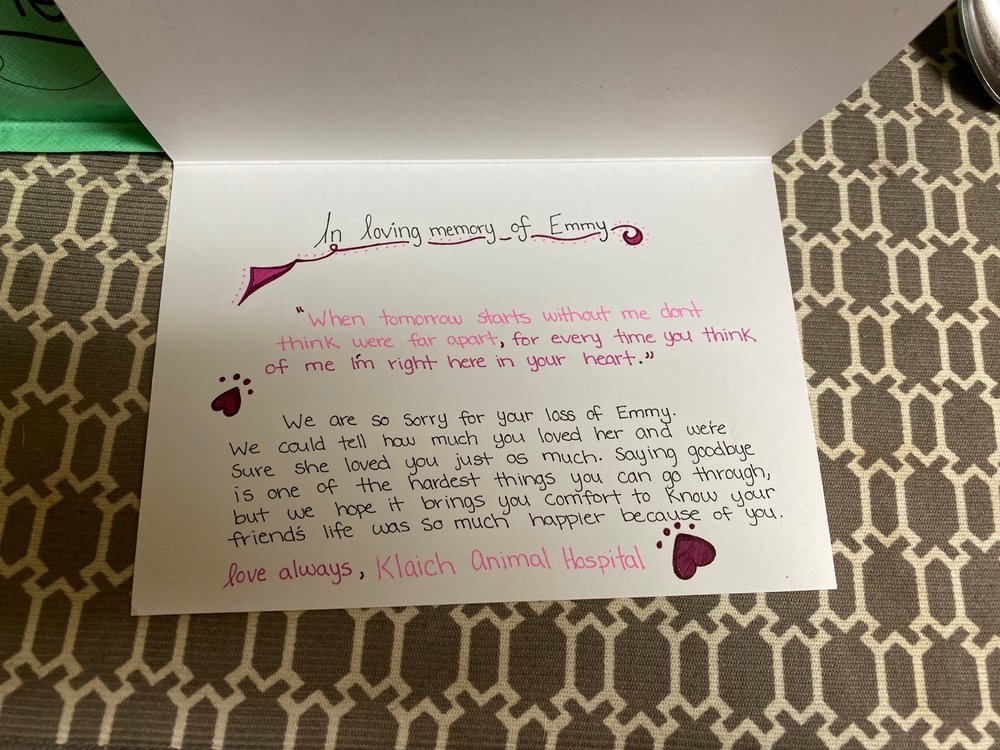 In loving memory of Emmy
"When tomorrow starts without me dont
think were far apart, for every time you think
of me I'm right here in your heart."
We are so sorry for your loss of Emmy.
We could tell how much you loved her and we're
sure she loved you just as much. Saying goodbye
is one of the hardest things you can go through,
but we hope it brings you comfort to know your
friend's life was so much happier because of you.
love always, Klaich Animal Hospital